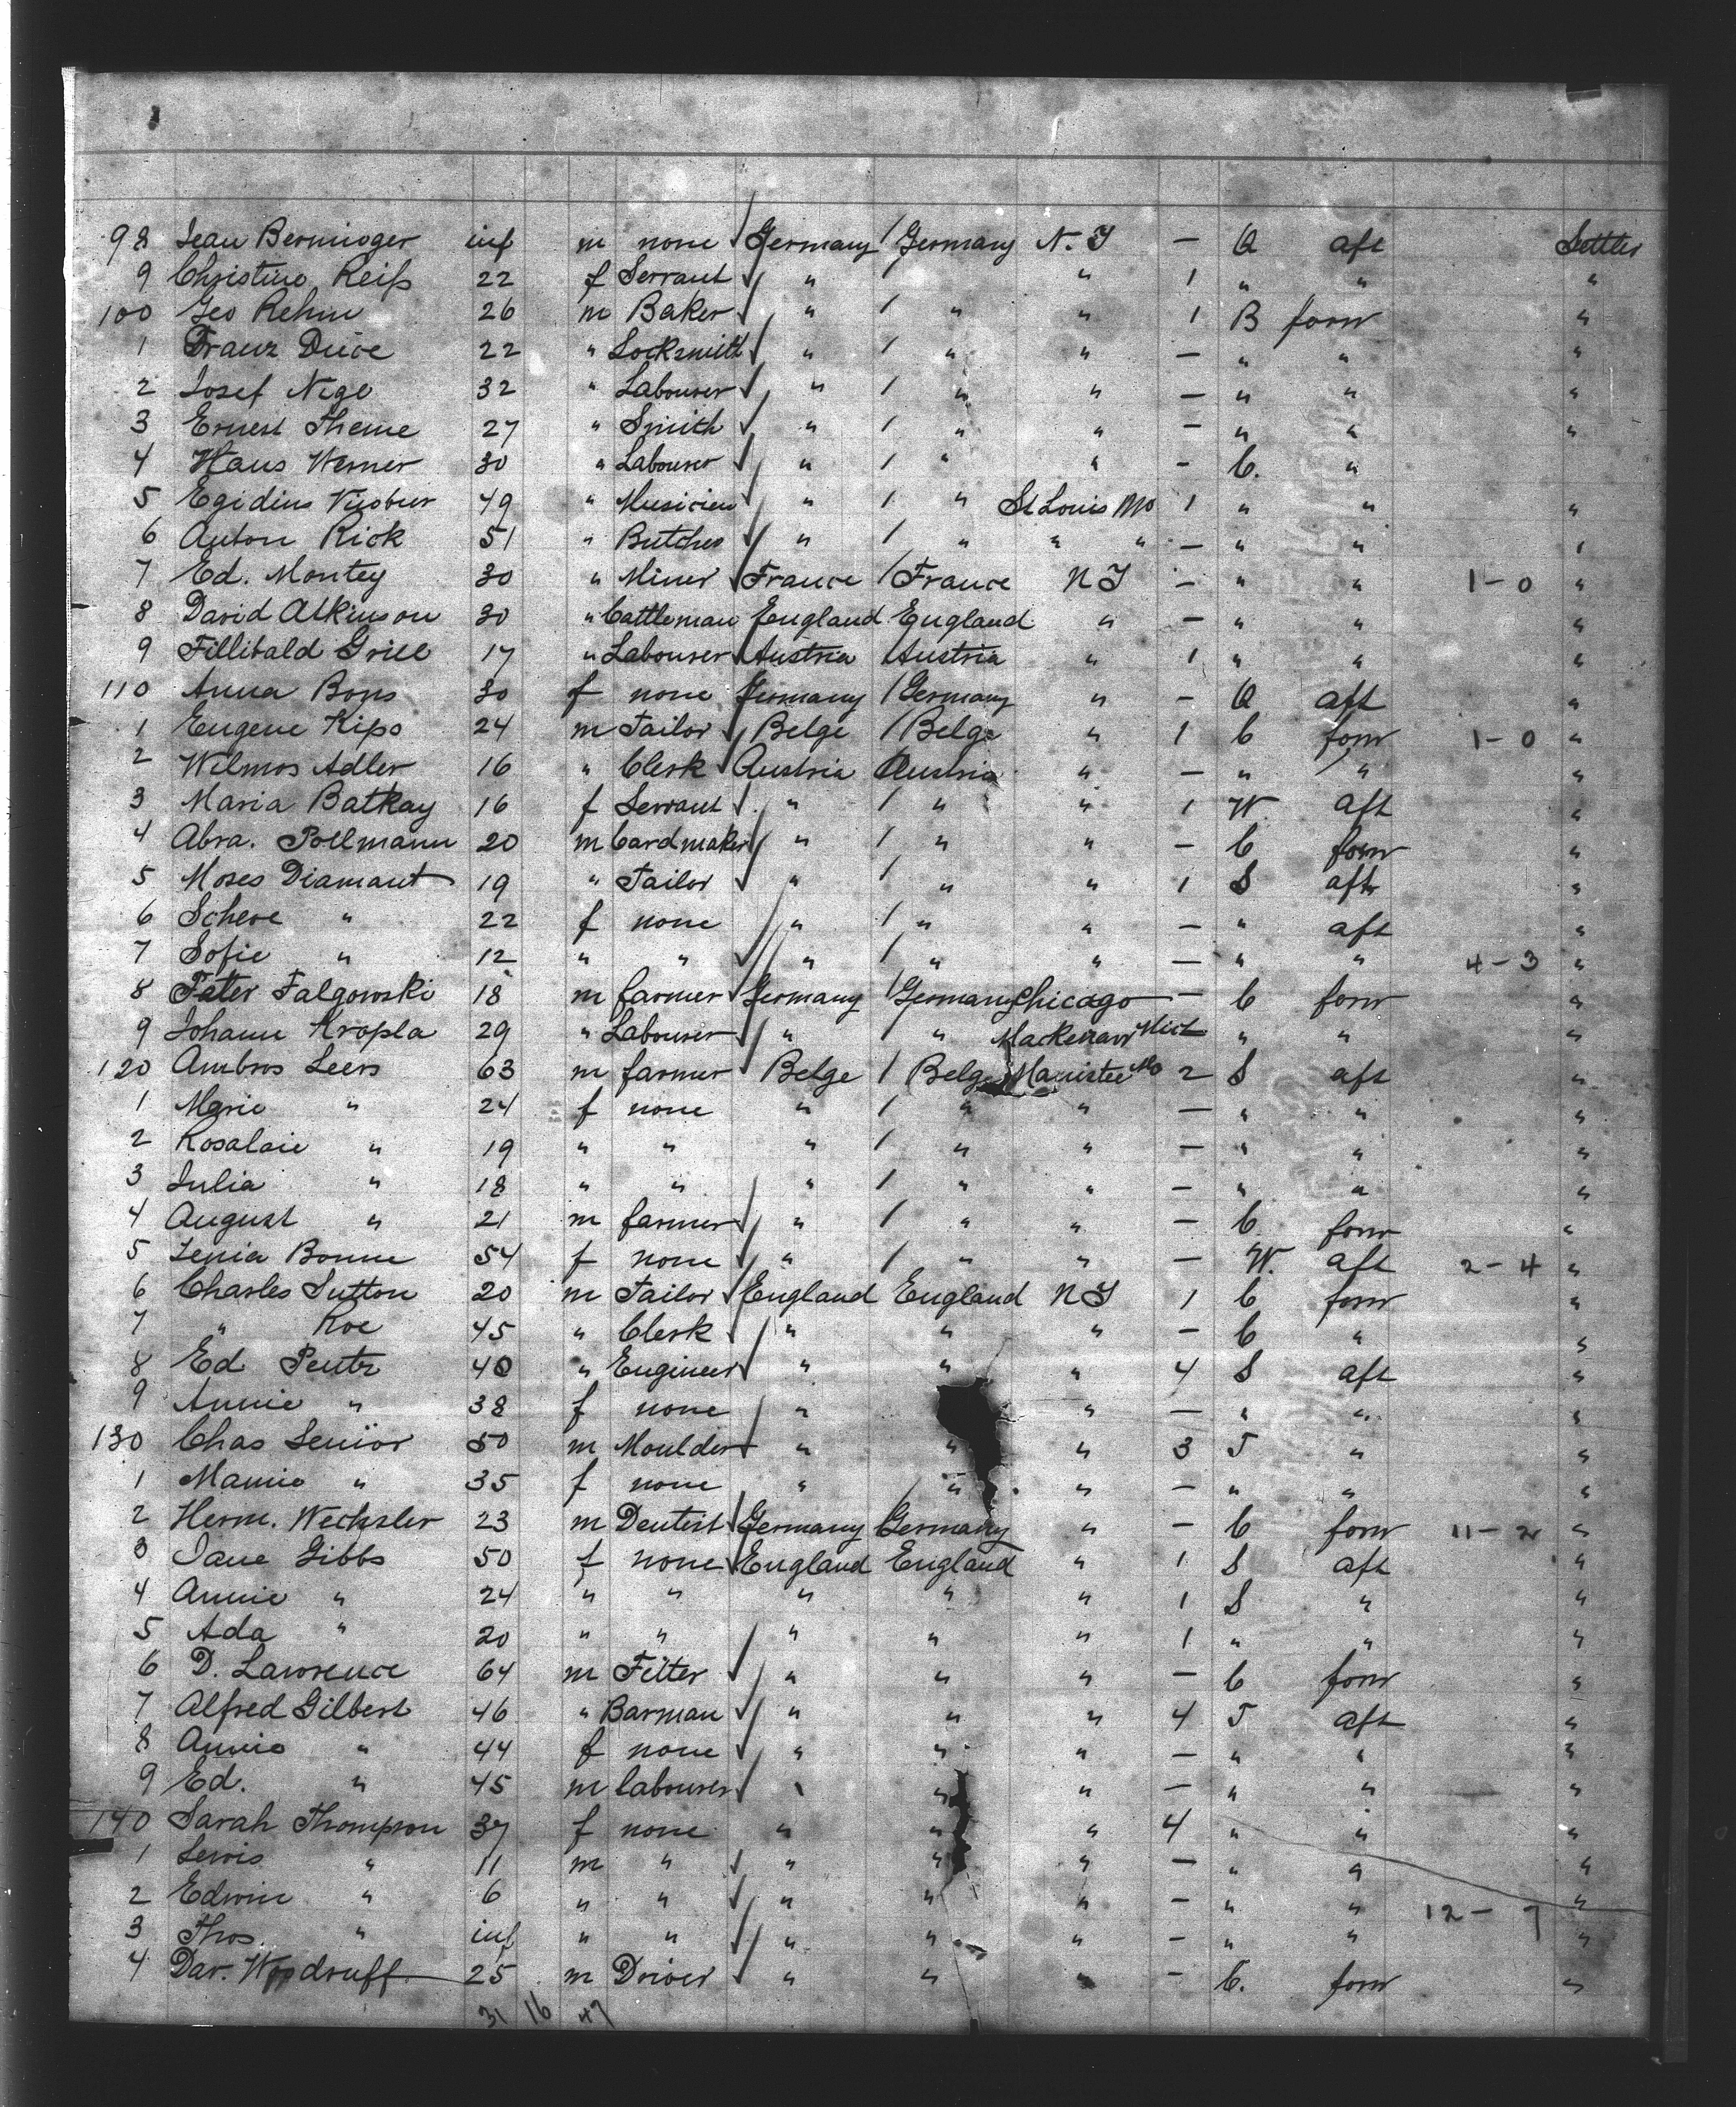 98 Jean Berninger inf m none Germany / Germany N.Y — Q aft Settler
9 Christine Reiß 22 f Servant " " 1 " " "
100 Geo Rehm 26 m Baker " / " " 1 B forw "
1 Franz 22 " Locksmith " / " " — " " "
2 Josef Nige 32 " Labourer " / " " — " " "
3 Ernest Theme 27 " Smith " / " " — " " "
4 Hans Werner 30 " Labourer " / " " - C. "
5 Egidius 49 " Musicien " / " St Louis Mo 1 " " "
6 Anton Rick 51 " Butcher " / " " " — " " "
7 Ed. Montey 30 " Miner France / France N Y — " " 1-0 "
8 David Atkinson 30 " Cattleman England England " — " " "
9 Fillibald Grill 17 " Labourer Austria / Austria " 1 " " "
110 Anna Bons 30 f none Germany / Germany " - Q aft "
1 Eugene Kips 24 m Tailor Belge / Belge " 1 C forw 1-0 "
2 Wilmos Adler 16 " Clerk Austria Austria " — " " "
3 Maria Batkay 16 f Servant " / " " 1 W. aft "
4 Abra. Pollmann 20 m Cardmaker " / " " — C forw "
5 Moses Diamant 19 " Tailor " / " " 1 S aft "
6 Scheve " 22 f none " / " " — " aft "
7 Sofie " 12 " " " / " " — " " 4-3 "
8 Peter Falgowski 18 m farmer Germany / Germany Chicago — C forw "
9 Johann Kropla 29 " Labourer " / " Mackenaw Mich " " "
120 Ambros Leers 63 m farmer Belge / Belge Manistee Mo 2 S aft "
1 Marie " 24 f none " / " " — " " "
2 Rosalaie " 19 " " " / " " — " " "
3 Julia " 18 " " " / " " — " " "
4 August " 21 m farmer " / " " — C forw "
5 Lenia Bonne 54 f none " / " " — W. aft 2-4 "
6 Charles Sutton 20 m Tailor England England N Y 1 C forw "
7 " Roe 45 " Clerk " " " - C " "
8 Ed 40 " Engineer " " " 4 S aft "
9 Annie " 38 f none " " — " " "
130 Chas Senior 50 m Moulder " " " 3 T " "
1 Mamie " 35 f none " " " — " " "
2 Herm. Wechsler 23 m Dentist Germany Germany " - C forw 11-2 "
3 Jane Gibbs 50 f none England England " 1 S aft "
4 Annie " 24 " " " " " 1 S " "
5 Ada " 20 " " " " " 1 " " "
6 D. Lawrence 64 m Fitter " " " — C forw "
7 Alfred Gilbert 46 " Barman " " " 4 T aft "
8 Annie " 44 f none " " " — " " "
9 Ed. " 45 m labourer " " " — " " "
140 Sarah Thompson 37 f none " " " 4 " " "
1 Lewis " 11 m " " " " — " " "
2 Edwin " 6 " " " " " — " " "
12-7
3 Thos. " inf " " " " " — " " "
4 Dav. Woodruff 25 m Driver " " " — C. forw "
31 16 47